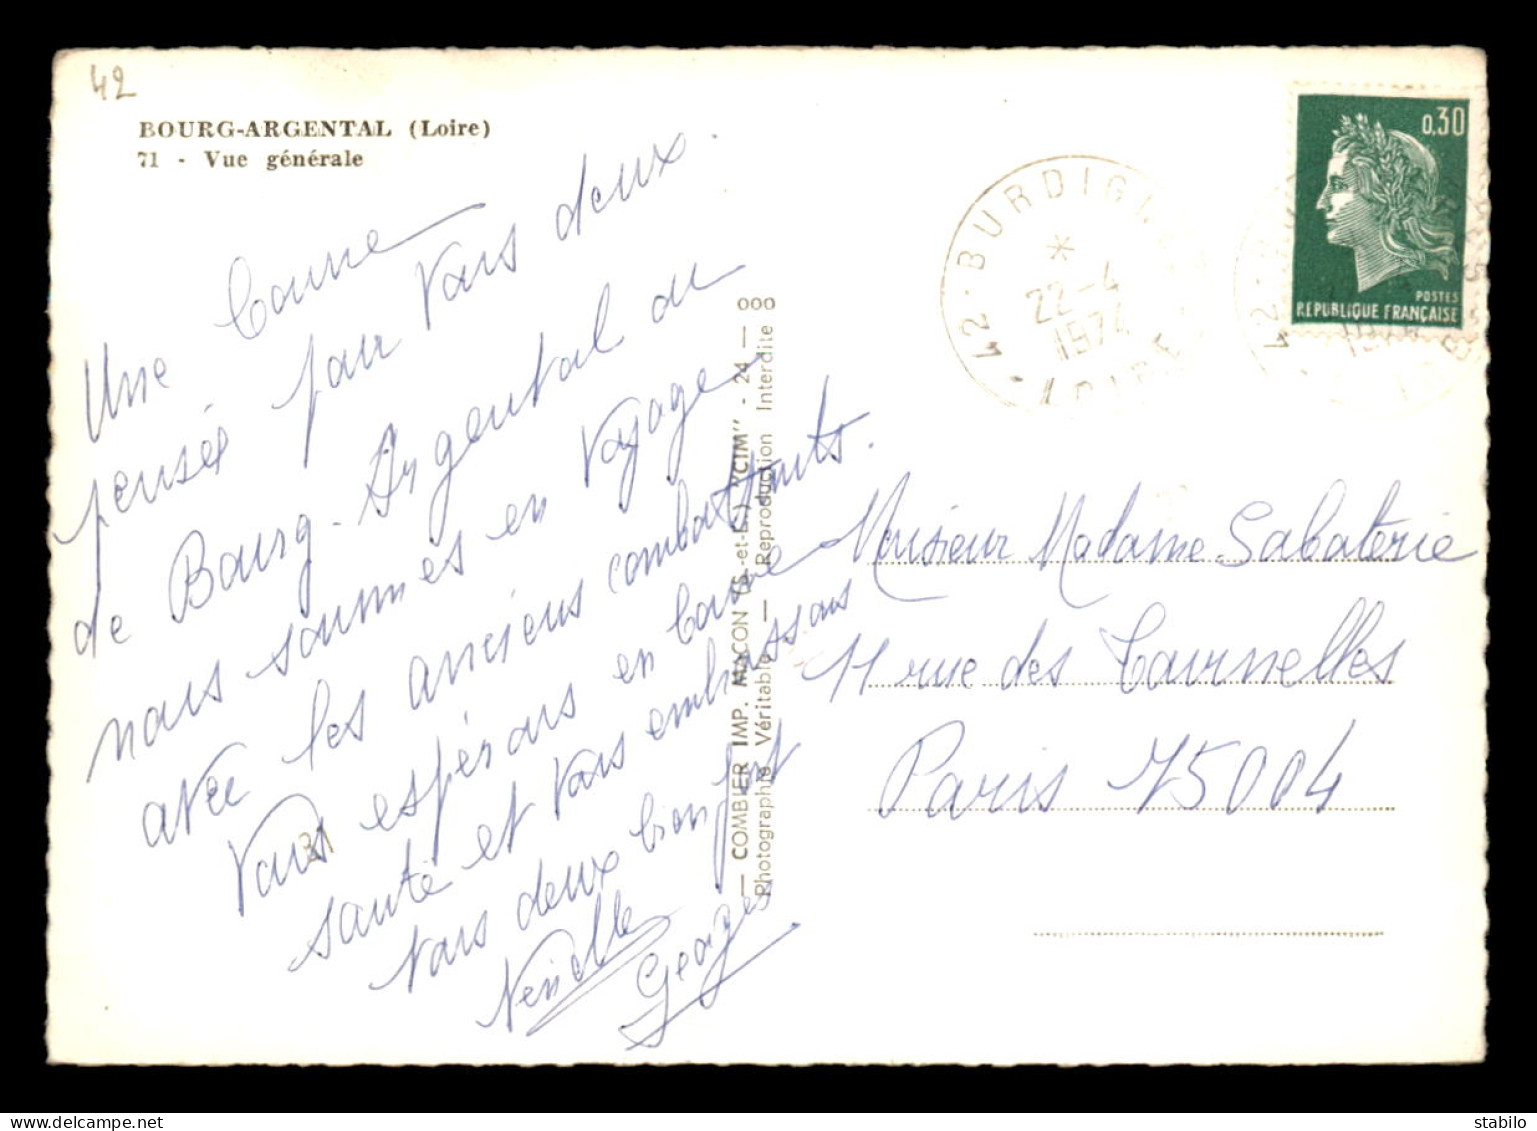 42
BOURG-ARGENTAL (Loire)
71 - Vue générale
Une bonne
pensée pour vous deux.
de Bourg-Argental ou
nous sommes en voyage
avec les anciens combattants.
Vous espérons en bonne
santé et vous embrassons
vous deux bien fort
Georges
21
— COMBIER IMP. MACON (S.-et-L.) "CIM" - 24 — 000
Photographie Véritable — Reproduction Interdite
0,30
POSTES
REPUBLIQUE FRANÇAISE
42 - BURDIGN
*
22-4
1974
LOIRE
Monsieur Madame Sabaterie
11 rue des Tournelles
Paris 75004
stabilo